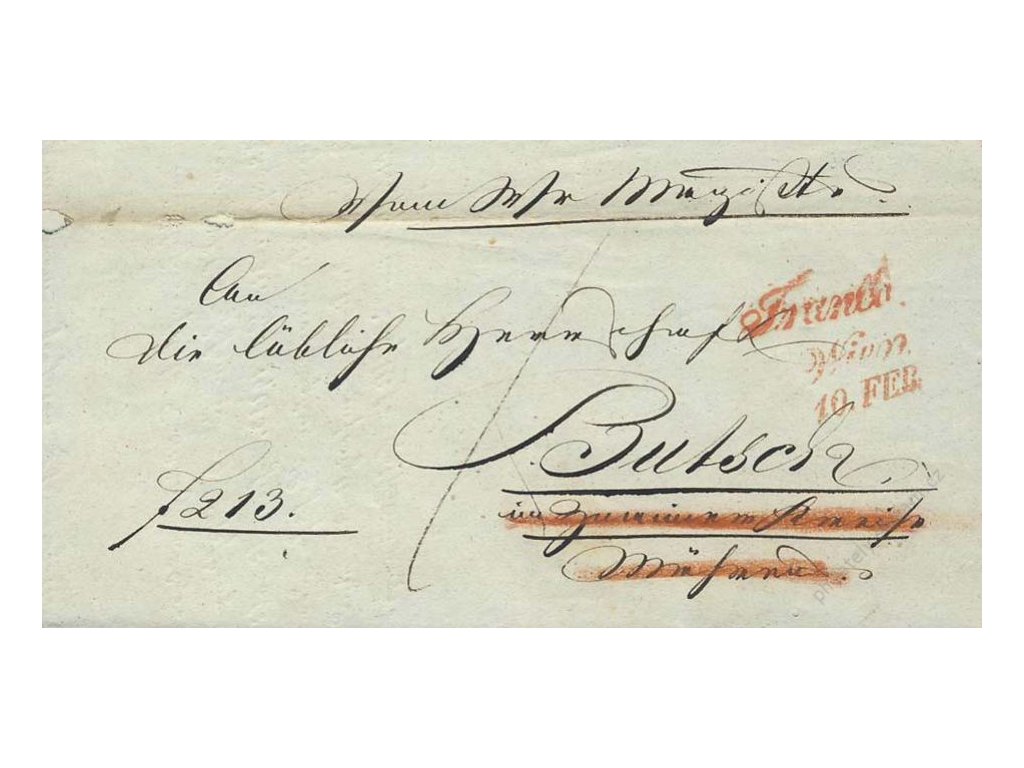 Vom Wr Magistr.
An
die löbliche Herrschaft
Franco.
Wien
10. FEB.
Butsch
f 213.
im Znaimer Kreise
Mähren.